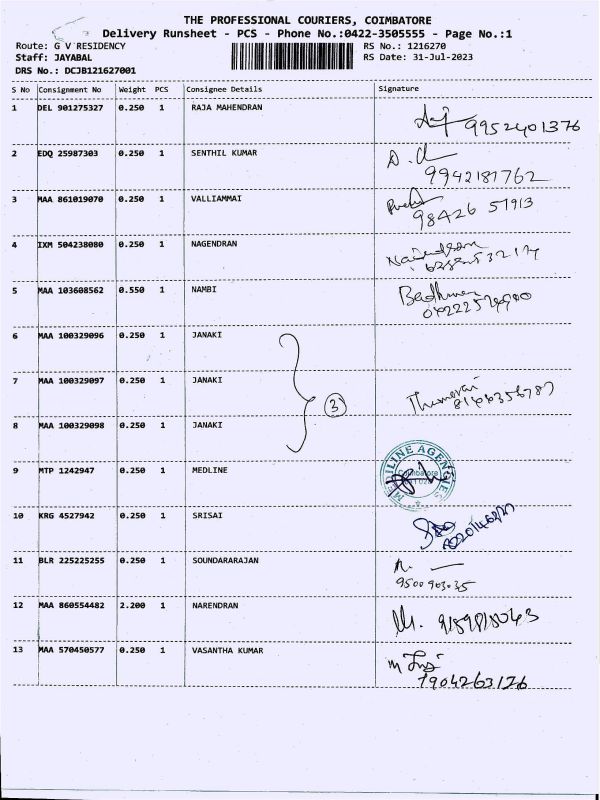 THE PROFESSIONAL COURIERS, COIMBATORE
Delivery Runsheet - PCS - Phone No.:0422-3505555 - Page No.:1
Route: G V RESIDENCY RS No.: 1216270
Staff: JAYABAL RS Date: 31-Jul-2023
DRS No.: DCJB121627001
S No Consignment No Weight PCS Consignee Details Signature
1 DEL 901275327 0.250 1 RAJA MAHENDRAN
9952401376
2 EDQ 25987303 0.250 1 SENTHIL KUMAR
9942187762
3 MAA 861019070 0.250 1 VALLIAMMAI
98426 57913
4 IXM 504238080 0.250 1 NAGENDRAN
5 MAA 103608562 0.550 1 NAMBI
6 MAA 100329096 0.250 1 JANAKI
7 MAA 100329097 0.250 1 JANAKI
3
8 MAA 100329098 0.250 1 JANAKI
9 MTP 1242947 0.250 1 MEDLINE
MEDILINE AGENCIES
Coimbatore
10 KRG 4527942 0.250 1 SRISAI
11 BLR 225225255 0.250 1 SOUNDARARAJAN
9500903035
12 MAA 860554482 2.200 1 NARENDRAN
13 MAA 570450577 0.250 1 VASANTHA KUMAR
7904263126